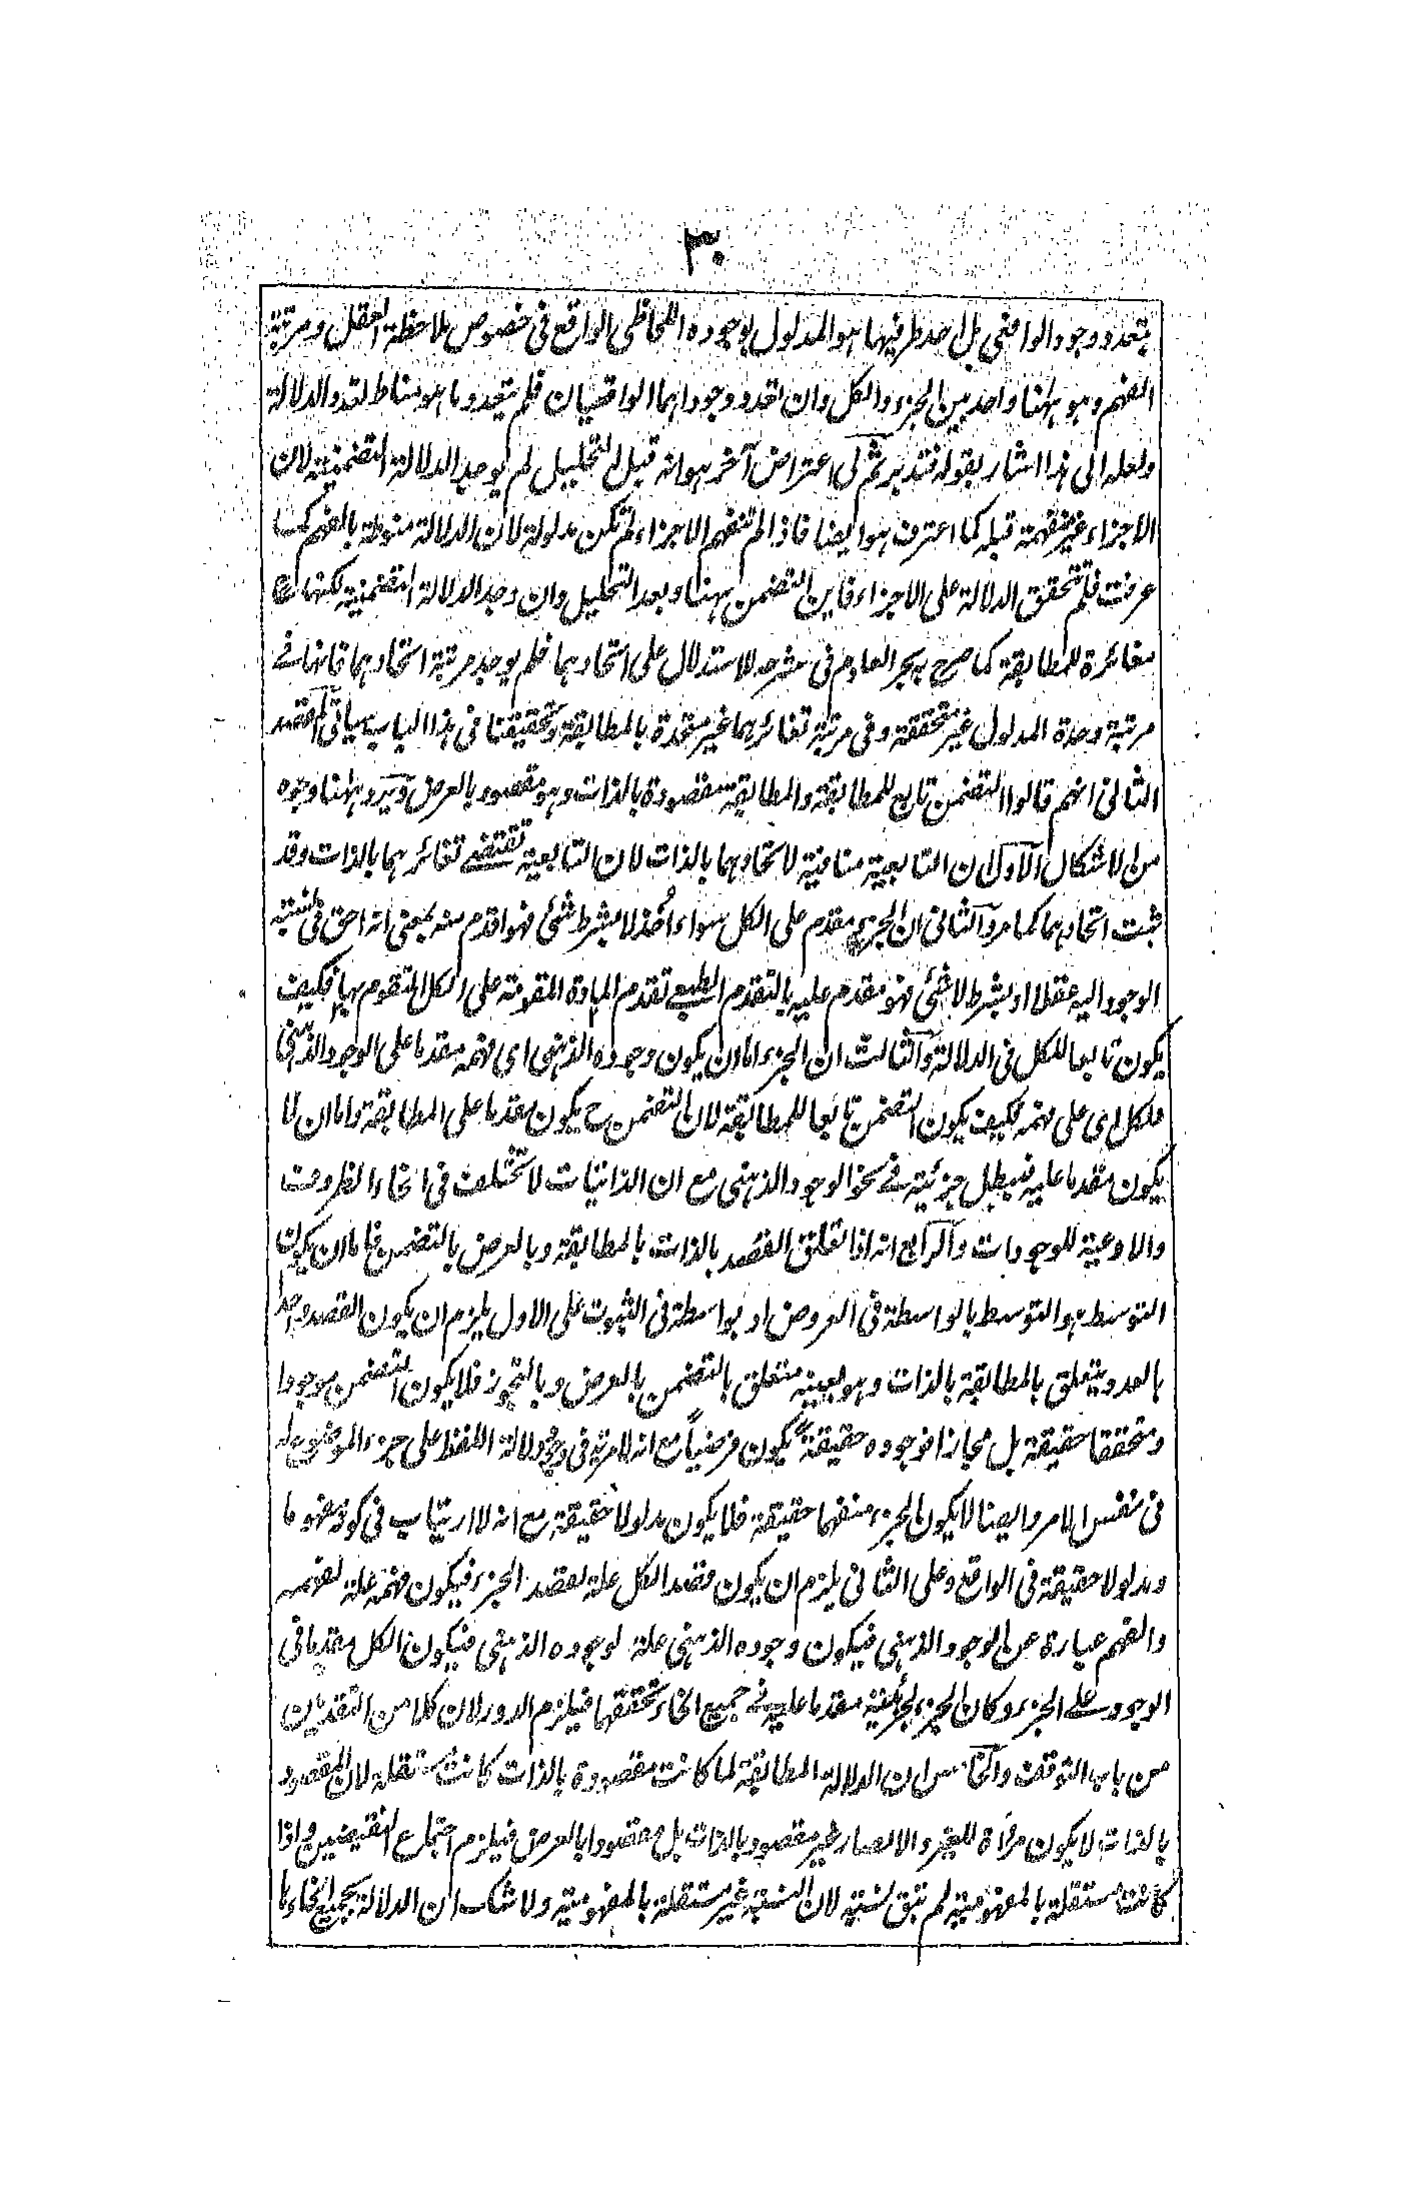 ٣٠
بتعدد وجود الواقعى بل احد طرفيها هو المدلول بوجوده اللحاظى الواقع فى خصوص ملاحظة العقل ومرتبة
الفهم وهو ههنا واحد بين الجزء والكل وان تعدد وجوداهما الواقعيان فلم يتعدد ما هو مناط لتعدد الدلالة
ولعله الى هذا اشار بقوله فتدبر ثم لى اعتراض آخر هو انه قبل التحليل لم يوجد الدلالة التضمنية لان
الاجزاء غير منفهمة قبله كما اعترف هو ايضا فاذا لم تنفهم الاجزاء لم تكن مدلولة لان الدلالة منوطة بالفهم كما
عرفت فلم تتحقق الدلالة على الاجزاء فاين التضمن ههنا وبعد التحليل وان وجد الدلالة التضمنية لكنها ح
مغائرة للمطابقة كما صرح به بحر العلوم فى شرحه للاستدلال على اتحادهما فلم يوجد مرتبة اتحادهما فانها فے
مرتبة وحدة المدلول غير متحققة وفى مرتبة تغائرهما غير متحدة بالمطابقة وتحقيقنا فى هذا الباب سياتى المقصد
الثانى انهم قالوا التضمن تابع للمطابقة والمطابقة مقصودة بالذات وهو مقصود بالعرض ويرد ههنا وجوه
من الاشكال الاول ان التابعية منافية لاتحادهما بالذات لان التابعية تقتضے تغائرهما بالذات وقد
ثبت اتحادهما كما مر والثانى ان الجزء مقدم على الكل سواء اُخذ لا بشرط شئ فهو اقدم منه بمعنى انه احق فى نسبته
الوجود اليه عقلا او بشرط لا شئ فهو مقدم عليه بالتقدم الطبعے تقدم المادة المقومة على الكل المتقوم بها فكيف
يكون تابعا للكل فى الدلالة والثالث ان الجزء اما ان يكون وجوده الذهنى اى فهمه مقدما على الوجود الذهنى
للكل اى على فهمه فكيف يكون التضمن تابعا للمطابقة لان التضمن ح يكون مقدما على المطابقة واما ان لا
يكون مقدما عليه فيبطل جزئيته فے نحو الوجود الذهنى مع ان الذاتيات لا تختلف فى انحاء الظروف
والاوعية للوجودات والرابع انه اذا تعلق القصد بالذات بالمطابقة وبالعرض بالتضمن فاما ان يكون
التوسط هو التوسط بالواسطة فى العروض او بواسطة فى الثبوت على الاول يلزم ان يكون القصد واحدا
بالعدد يتعلق بالمطابقة بالذات وهو بعينه متعلق بالتضمن بالعرض وبالتجوز فلا يكون التضمن موجودا
ومتحققا حقيقة بل مجازا فوجوده حقيقة يكون فرضياً مع انه لا مرية فى وجود دلالة اللفظ على جزء الموضوع له
فى نفس الامر وايضا لا يكون الجزء منفهما حقيقة فلا يكون مدلولا حقيقة مع انه لا ارتياب فى كونه مفهوما
ومدلولا حقيقة فى الواقع وعلى الثانى يلزم ان يكون قصد الكل علة لقصد الجزء فيكون فهمه علة لفهمه
والفهم عبارة عن الوجود الذهنى فيكون وجوده الذهنى علة لوجوده الذهنى فيكون الكل مقدما فى
الوجود علے الجزء وكان الجزء لجزئيته مقدما عليه فے جميع انحاء تحققها فيلزم الدور لان كلا من التقدمين
من باب التوقف والخامس ان الدلالة المطابقة لما كانت مقصودة بالذات كانت مستقلة لان المقصود
بالذات لا يكون مرآة للغير والا لصار غير مقصود بالذات بل مقصودا بالعرض فيلزم اجتماع النقيضين واذا
كانت مستقلة بالمفهومية لم تبق نسبة لان النسبة غير مستقلة بالمفهومية ولا شك ان الدلالة بجميع انحائها